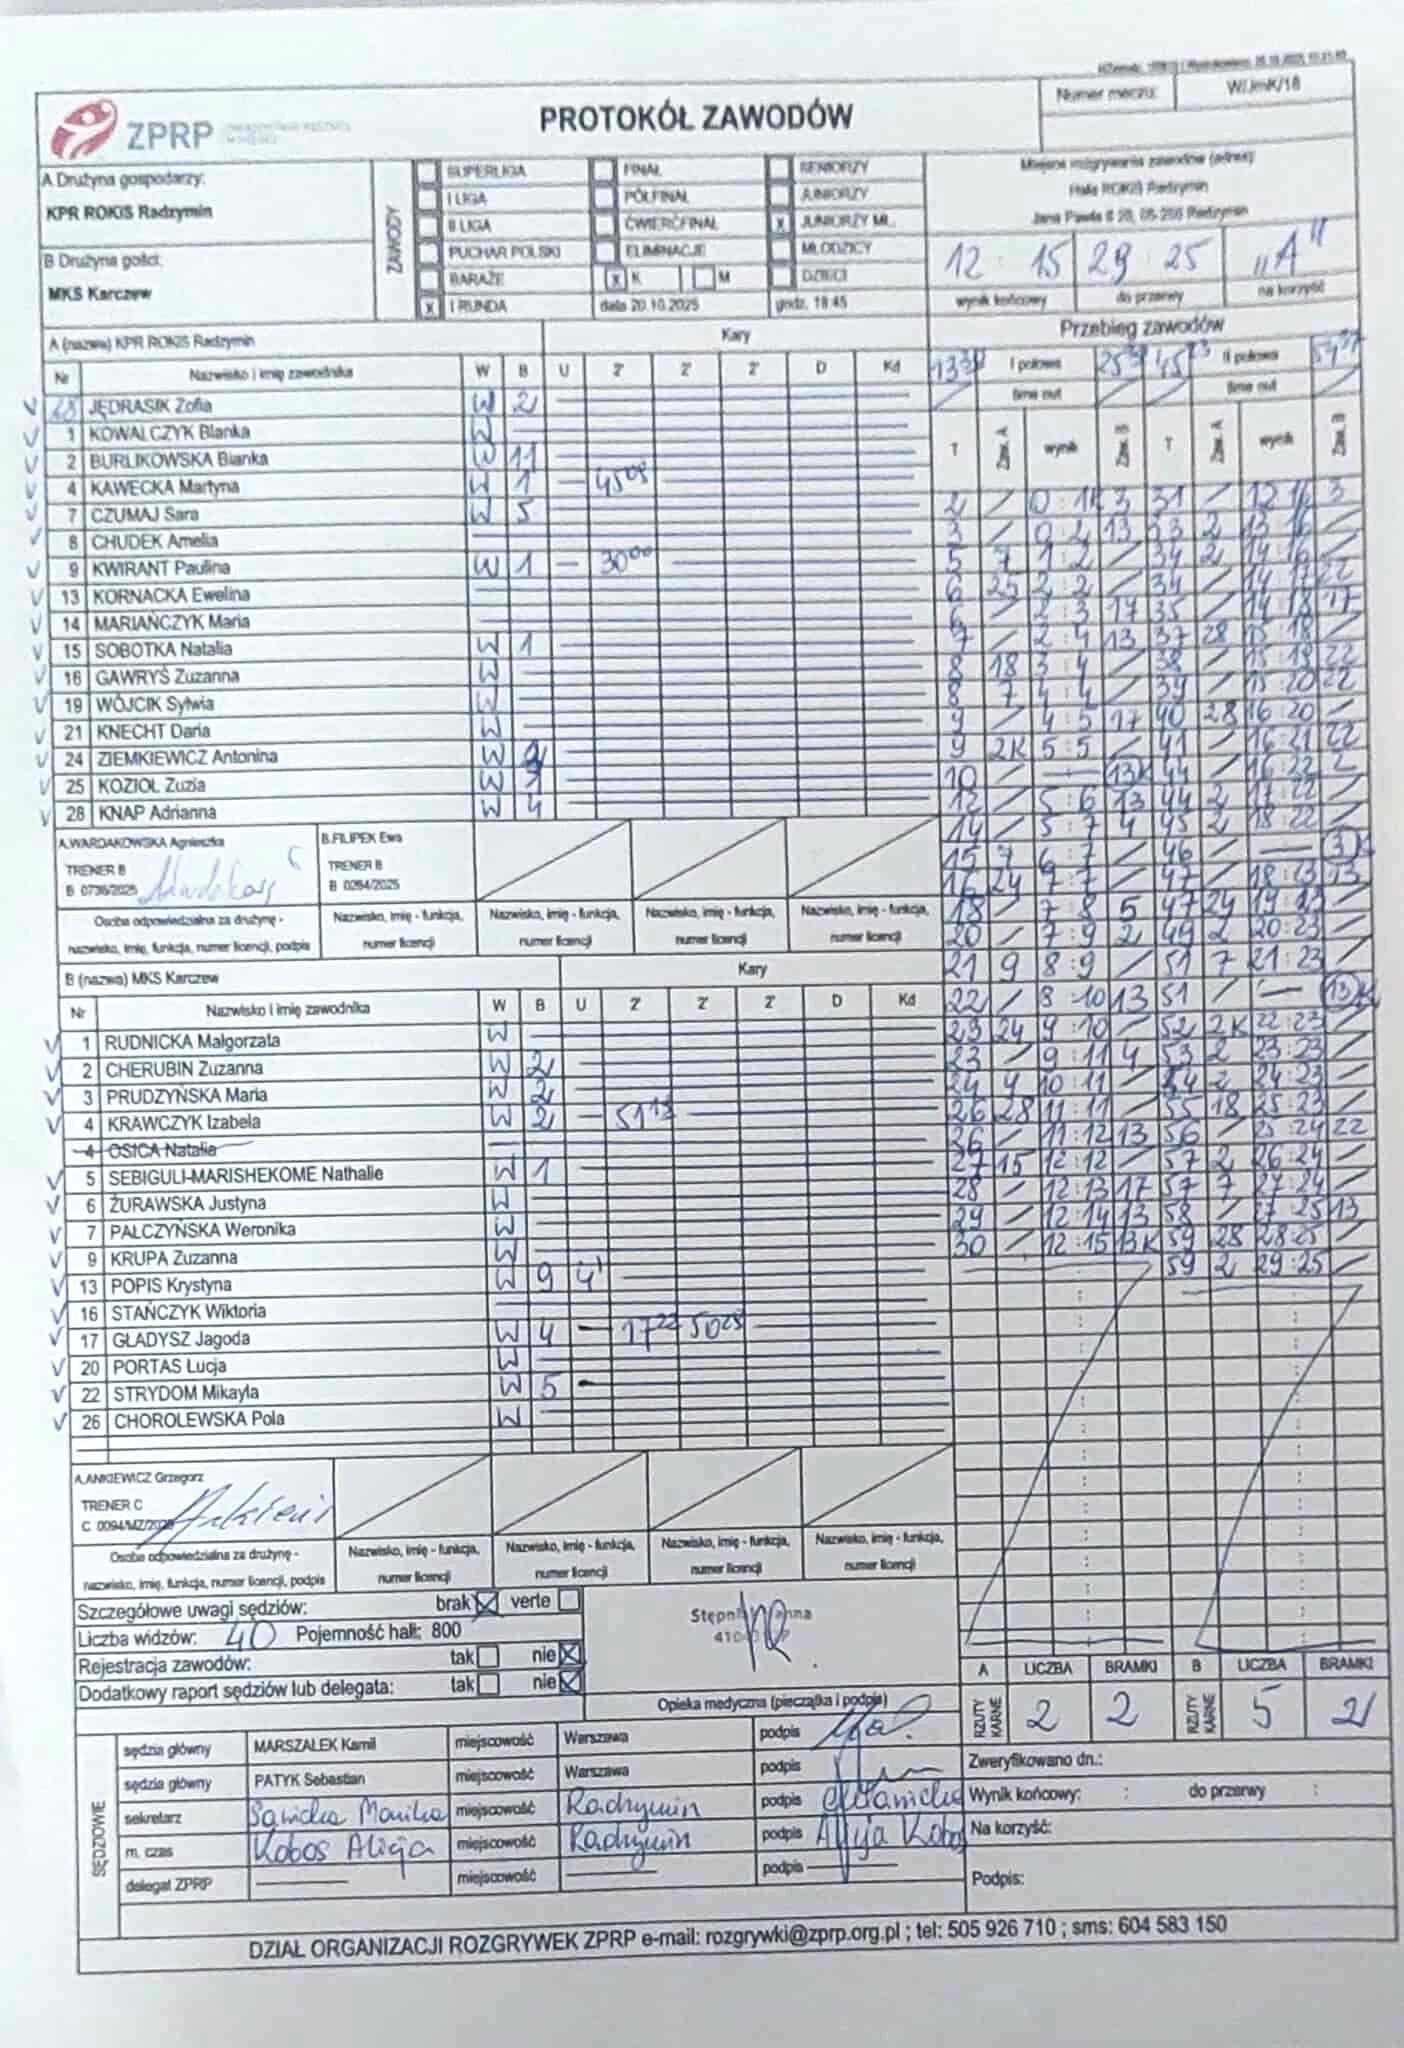 PROTOKÓŁ ZAWODÓW
Numer meczu: W/JmK/18
ZPRP
A Drużyna gospodarzy:
KPR ROKiS Radzymin
B Drużyna gości:
MKS Karczew
ZAWODY
SUPERLIGA FINAŁ SENIORZY
I LIGA PÓŁFINAŁ JUNIORZY
II LIGA ĆWIERĆFINAŁ x JUNIORZY MŁ.
PUCHAR POLSKI ELIMINACJE MŁODZICY
BARAŻE x K M DZIECI
x I RUNDA data 20.10.2025 godz. 18:45
Miejsce rozgrywania zawodów (adres)
Hala ROKiS Radzymin
Jana Pawła II 20, 05-250 Radzymin
12 : 15 29 : 25 "A"
wynik końcowy do przerwy na korzyść
Przebieg zawodów
I połowa II połowa
time out time out
T Zaw. A wynik Zaw. B T Zaw. A wynik Zaw. B
A (nazwa) KPR ROKiS Radzymin Kary
Nr Nazwisko i imię zawodnika W B U 2' 2' 2' D Kd
18 JĘDRASIK Zofia W 2
1 KOWALCZYK Blanka W
2 BURLIKOWSKA Bianka W 11
4 KAWECKA Martyna W 1 - 45 08
7 CZUMAJ Sara W 5
8 CHUDEK Amelia
9 KWIRANT Paulina W 1 - 30 00
13 KORNACKA Ewelina
14 MARIAŃCZYK Maria
15 SOBOTKA Natalia W 1
16 GAWRYŚ Zuzanna W
19 WÓJCIK Sylwia W
21 KNECHT Daria W
24 ZIEMKIEWICZ Antonina W
25 KOZIOŁ Zuzia W 1
28 KNAP Adrianna W 4
A.WARDAKOWSKA Agnieszka B.FILIPEK Ewa
TRENER B TRENER B
B 0736/2025 B 0264/2025
Osoba odpowiedzialna za drużynę - Nazwisko, imię - funkcja, Nazwisko, imię - funkcja, Nazwisko, imię - funkcja, Nazwisko, imię - funkcja,
nazwisko, imię, funkcja, numer licencji, podpis numer licencji numer licencji numer licencji numer licencji
B (nazwa) MKS Karczew Kary
Nr Nazwisko i imię zawodnika W B U 2' 2' 2' D Kd
1 RUDNICKA Małgorzata W
2 CHERUBIN Zuzanna W 2
3 PRUDZYŃSKA Maria W 2
4 KRAWCZYK Izabela W 2 - 51 13
4 OSICA Natalia
5 SEBIGULI-MARISHEKOME Nathalie W 1
6 ŻURAWSKA Justyna W
7 PALCZYŃSKA Weronika W
9 KRUPA Zuzanna W
13 POPIS Krystyna W 9 41
16 STAŃCZYK Wiktoria
17 GŁADYSZ Jagoda W 4 - 17 22 50 28
20 PORTAS Łucja W
22 STRYDOM Mikayla W 5 -
26 CHOROLEWSKA Pola W
2 / 0 : 1 3 31 / 12 16 3
3 / 0 : 2 13 33 2 13 16 /
5 7 1 : 2 / 34 2 14 : 16 /
6 25 2 : 2 / 34 / 14 : 17 22
6 / 2 : 3 17 35 / 14 : 18 17
7 / 2 : 4 13 37 28 15 : 18 /
8 18 3 : 4 / 38 / 15 : 19 22
8 7 4 : 4 / 39 / 15 : 20 22
9 / 4 : 5 17 40 28 16 : 20 /
9 2K 5 : 5 / 41 / 16 : 21 22
10 / — 13K 44 / 16 : 22 2
12 / 5 : 6 13 44 2 17 : 22 /
14 / 5 : 7 4 45 2 18 : 22 /
15 7 6 : 7 / 46 / — 3K
16 24 7 : 7 / 47 / 18 : 23 13
18 / 7 : 8 5 47 24 19 : 23 /
20 / 7 : 9 2 49 2 20 : 23 /
21 9 8 : 9 / 51 7 21 : 23 /
22 / 8 : 10 13 51 / — 13K
23 24 9 : 10 / 52 2K 22 : 23 /
23 / 9 : 11 4 53 2 23 : 23 /
24 4 10 : 11 / 54 2 24 : 23 /
26 28 11 : 11 / 55 18 25 : 23 /
26 / 11 : 12 13 56 / 25 : 24 22
27 15 12 : 12 / 57 2 26 : 24 /
28 / 12 : 13 17 57 7 27 : 24 /
29 / 12 : 14 13 58 / 27 : 25 13
30 / 12 : 15 13K 59 28 28 : 25 /
59 2 29 : 25 /
A.ANKIEWICZ Grzegorz
TRENER C
C 0094/MZ/2025
Osoba odpowiedzialna za drużynę - Nazwisko, imię - funkcja, Nazwisko, imię - funkcja, Nazwisko, imię - funkcja, Nazwisko, imię - funkcja,
nazwisko, imię, funkcja, numer licencji, podpis numer licencji numer licencji numer licencji numer licencji
Szczegółowe uwagi sędziów: brak verte
Liczba widzów: 40 Pojemność hali: 800
Rejestracja zawodów: tak nie
Dodatkowy raport sędziów lub delegata: tak nie
Opieka medyczna (pieczątka i podpis)
A LICZBA BRAMKI B LICZBA BRAMKI
RZUTY KARNE 2 2 RZUTY KARNE 5 2
SĘDZIOWIE
sędzia główny MARSZAŁEK Kamil miejscowość Warszawa podpis
sędzia główny PATYK Sebastian miejscowość Warszawa podpis
sekretarz Sawicka Monika miejscowość Radzymin podpis
m. czas Kobos Alicja miejscowość Radzymin podpis Alicja Kobos
delegat ZPRP miejscowość podpis
Zweryfikowano dn.:
Wynik końcowy: : do przerwy :
Na korzyść:
Podpis:
DZIAŁ ORGANIZACJI ROZGRYWEK ZPRP e-mail: rozgrywki@zprp.org.pl ; tel: 505 926 710 ; sms: 604 583 150